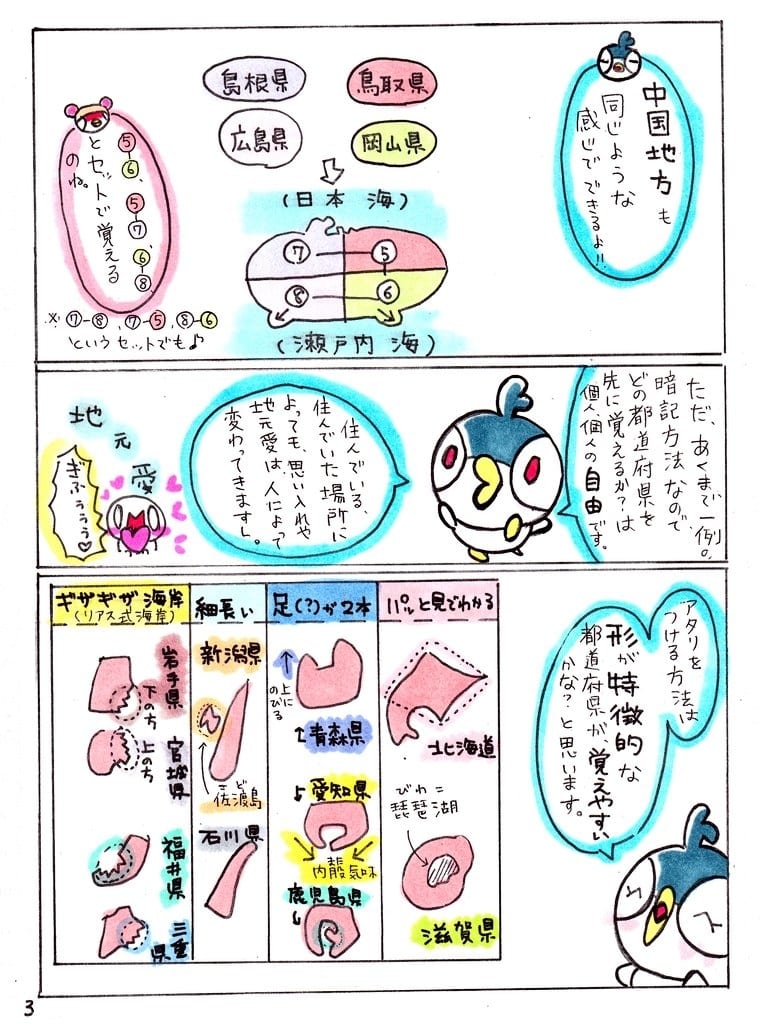 中国地方も
同じような
感じでできるよ!!
島根県
鳥取県
広島県
岡山県
(日本海)
⑦
⑤
⑧
⑥
(瀬戸内海)
⑤-⑥、⑤-⑦、⑥-⑧
とセットで覚える
のね。
※⑦-⑧、⑦-⑤、⑧-⑥
というセットでも♪
ただ、あくまで一例。
暗記方法なので、
どの都道府県を
先に覚えるか?は
個人、個人の自由です。
住んでいる、
住んでいた場所に
よっても、思い入れや
地元愛は、人によって
変わってきますし。
地元愛
ぎふぅぅぅ♡
アタリを
つける方法は
形が特徴的な
都道府県が覚えやすい
かな?と思います。
パッと見でわかる
北海道
びわこ
琵琶湖
滋賀県
足(?)が2本
上に
のびる
青森県
愛知県
内股気味
鹿児島県
細長い
新潟県
佐渡島
ど
石川県
ギザギザ海岸
(リアス式海岸)
岩手県
下のち
宮城県
上のち
福井県
三重県
3